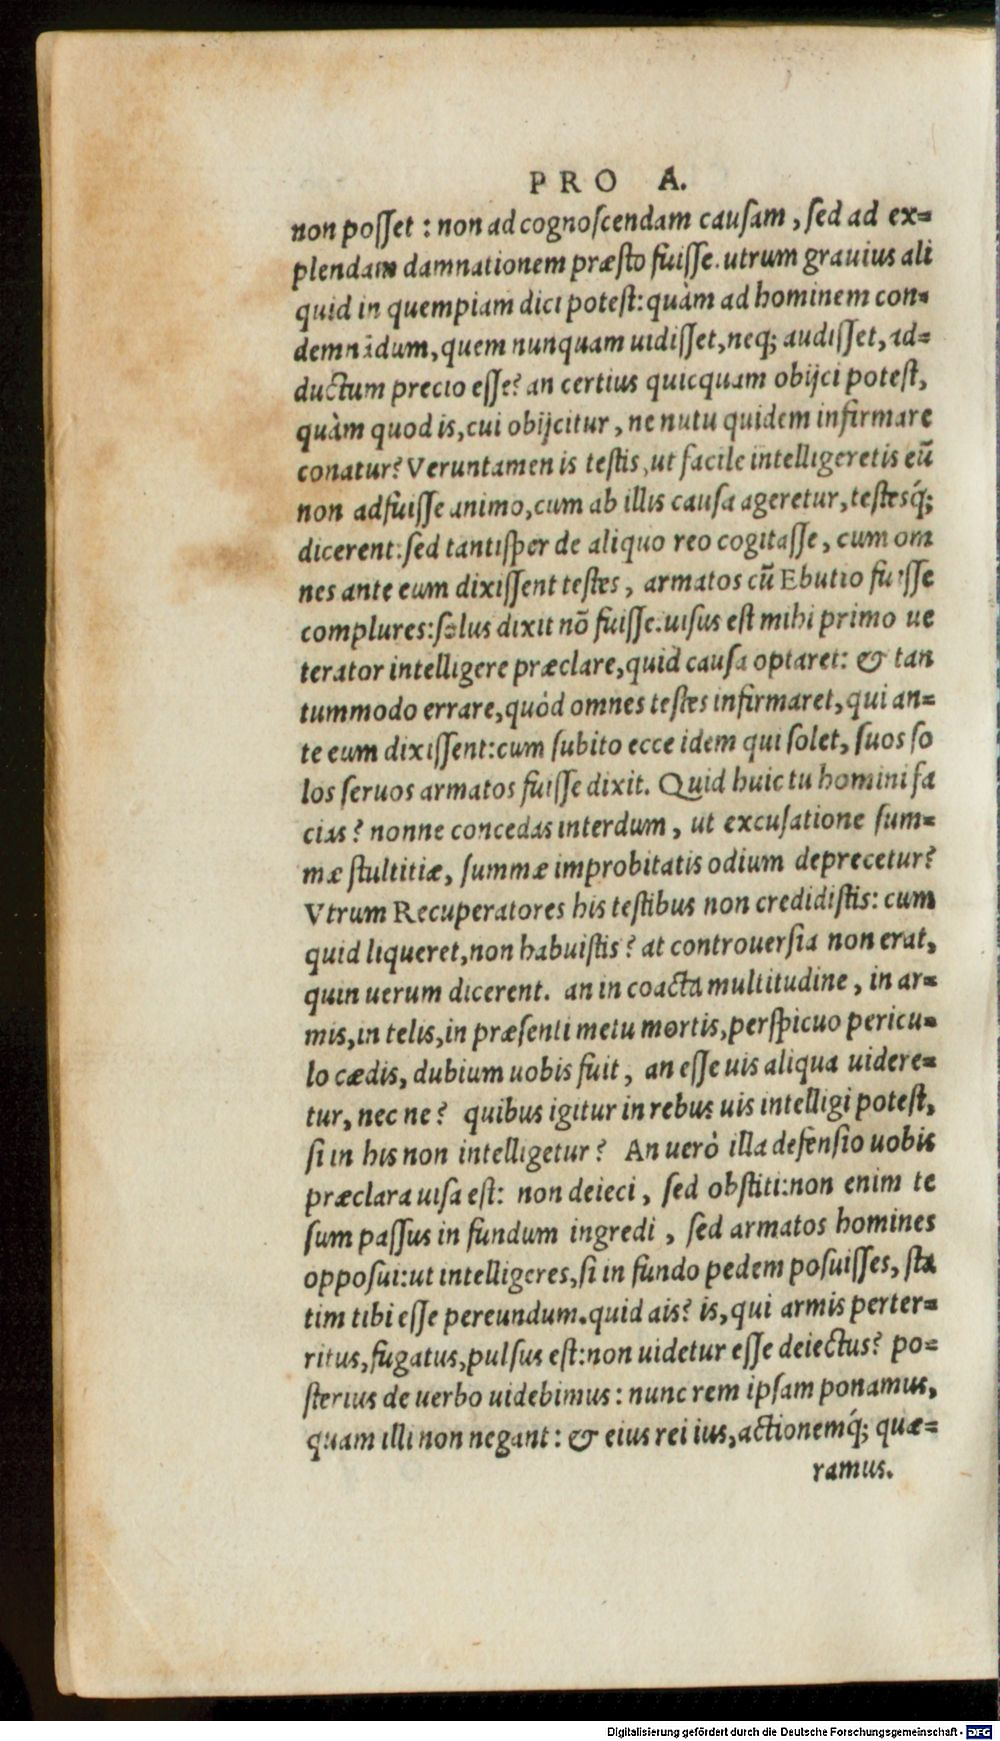 PRO A.
non posſet : non ad cognoſcendam cauſam , ſed ad ex=
plendam damnationem præſto fuiſſe. utrum grauius ali
quid in quempiam dici poteſt: quàm ad hominem con=
demnãdum, quem nunquam uidiſſet, neq; audiſſet, ad=
ductum precio eſſe? an certius quicquam obijci poteſt,
quàm quod is, cui obijcitur , ne nutu quidem infirmare
conatur? Veruntamen is teſtis, ut facile intelligeretis eũ
non adfuiſſe animo, cum ab illis cauſa ageretur, teſtesq́;
dicerent: ſed tantiſper de aliquo reo cogitaſſe , cum om
nes ante eum dixiſſent teſtes , armatos cũ Ebutio fuiſſe
complures: ſolus dixit nõ fuiſſe. uiſus eſt mihi primo ue
terator intelligere præclare, quid cauſa optaret: & tan
tummodo errare, quòd omnes teſtes infirmaret, qui an=
te eum dixiſſent: cum ſubito ecce idem qui ſolet, ſuos ſo
los ſeruos armatos fuiſſe dixit. Quid huic tu homini fa
cias? nonne concedas interdum , ut excuſatione ſum=
mæ ſtultitiæ, ſummæ improbitatis odium deprecetur?
Vtrum Recuperatores his teſtibus non credidiſtis: cum
quid liqueret, non habuiſtis? at controuerſia non erat,
quin uerum dicerent. an in coacta multitudine , in ar=
mis, in telis, in præſenti metu mortis, perſpicuo pericu=
lo cædis, dubium uobis fuit , an eſſe uis aliqua uidere=
tur, nec ne? quibus igitur in rebus uis intelligi poteſt,
ſi in his non intelligetur? An uerò illa defenſio uobis
præclara uiſa eſt: non deieci , ſed obſtiti: non enim te
ſum paſſus in fundum ingredi , ſed armatos homines
oppoſui: ut intelligeres, ſi in fundo pedem poſuiſſes, ſta
tim tibi eſſe pereundum. quid ais? is, qui armis perter=
ritus, fugatus, pulſus eſt: non uidetur eſſe deiectus? po=
ſterius de uerbo uidebimus: nunc rem ipſam ponamus,
quam illi non negant: & eius rei ius, actionemq́; quæ=
ramus.
Digitalisierung gefördert durch die Deutsche Forschungsgemeinschaft - DFG